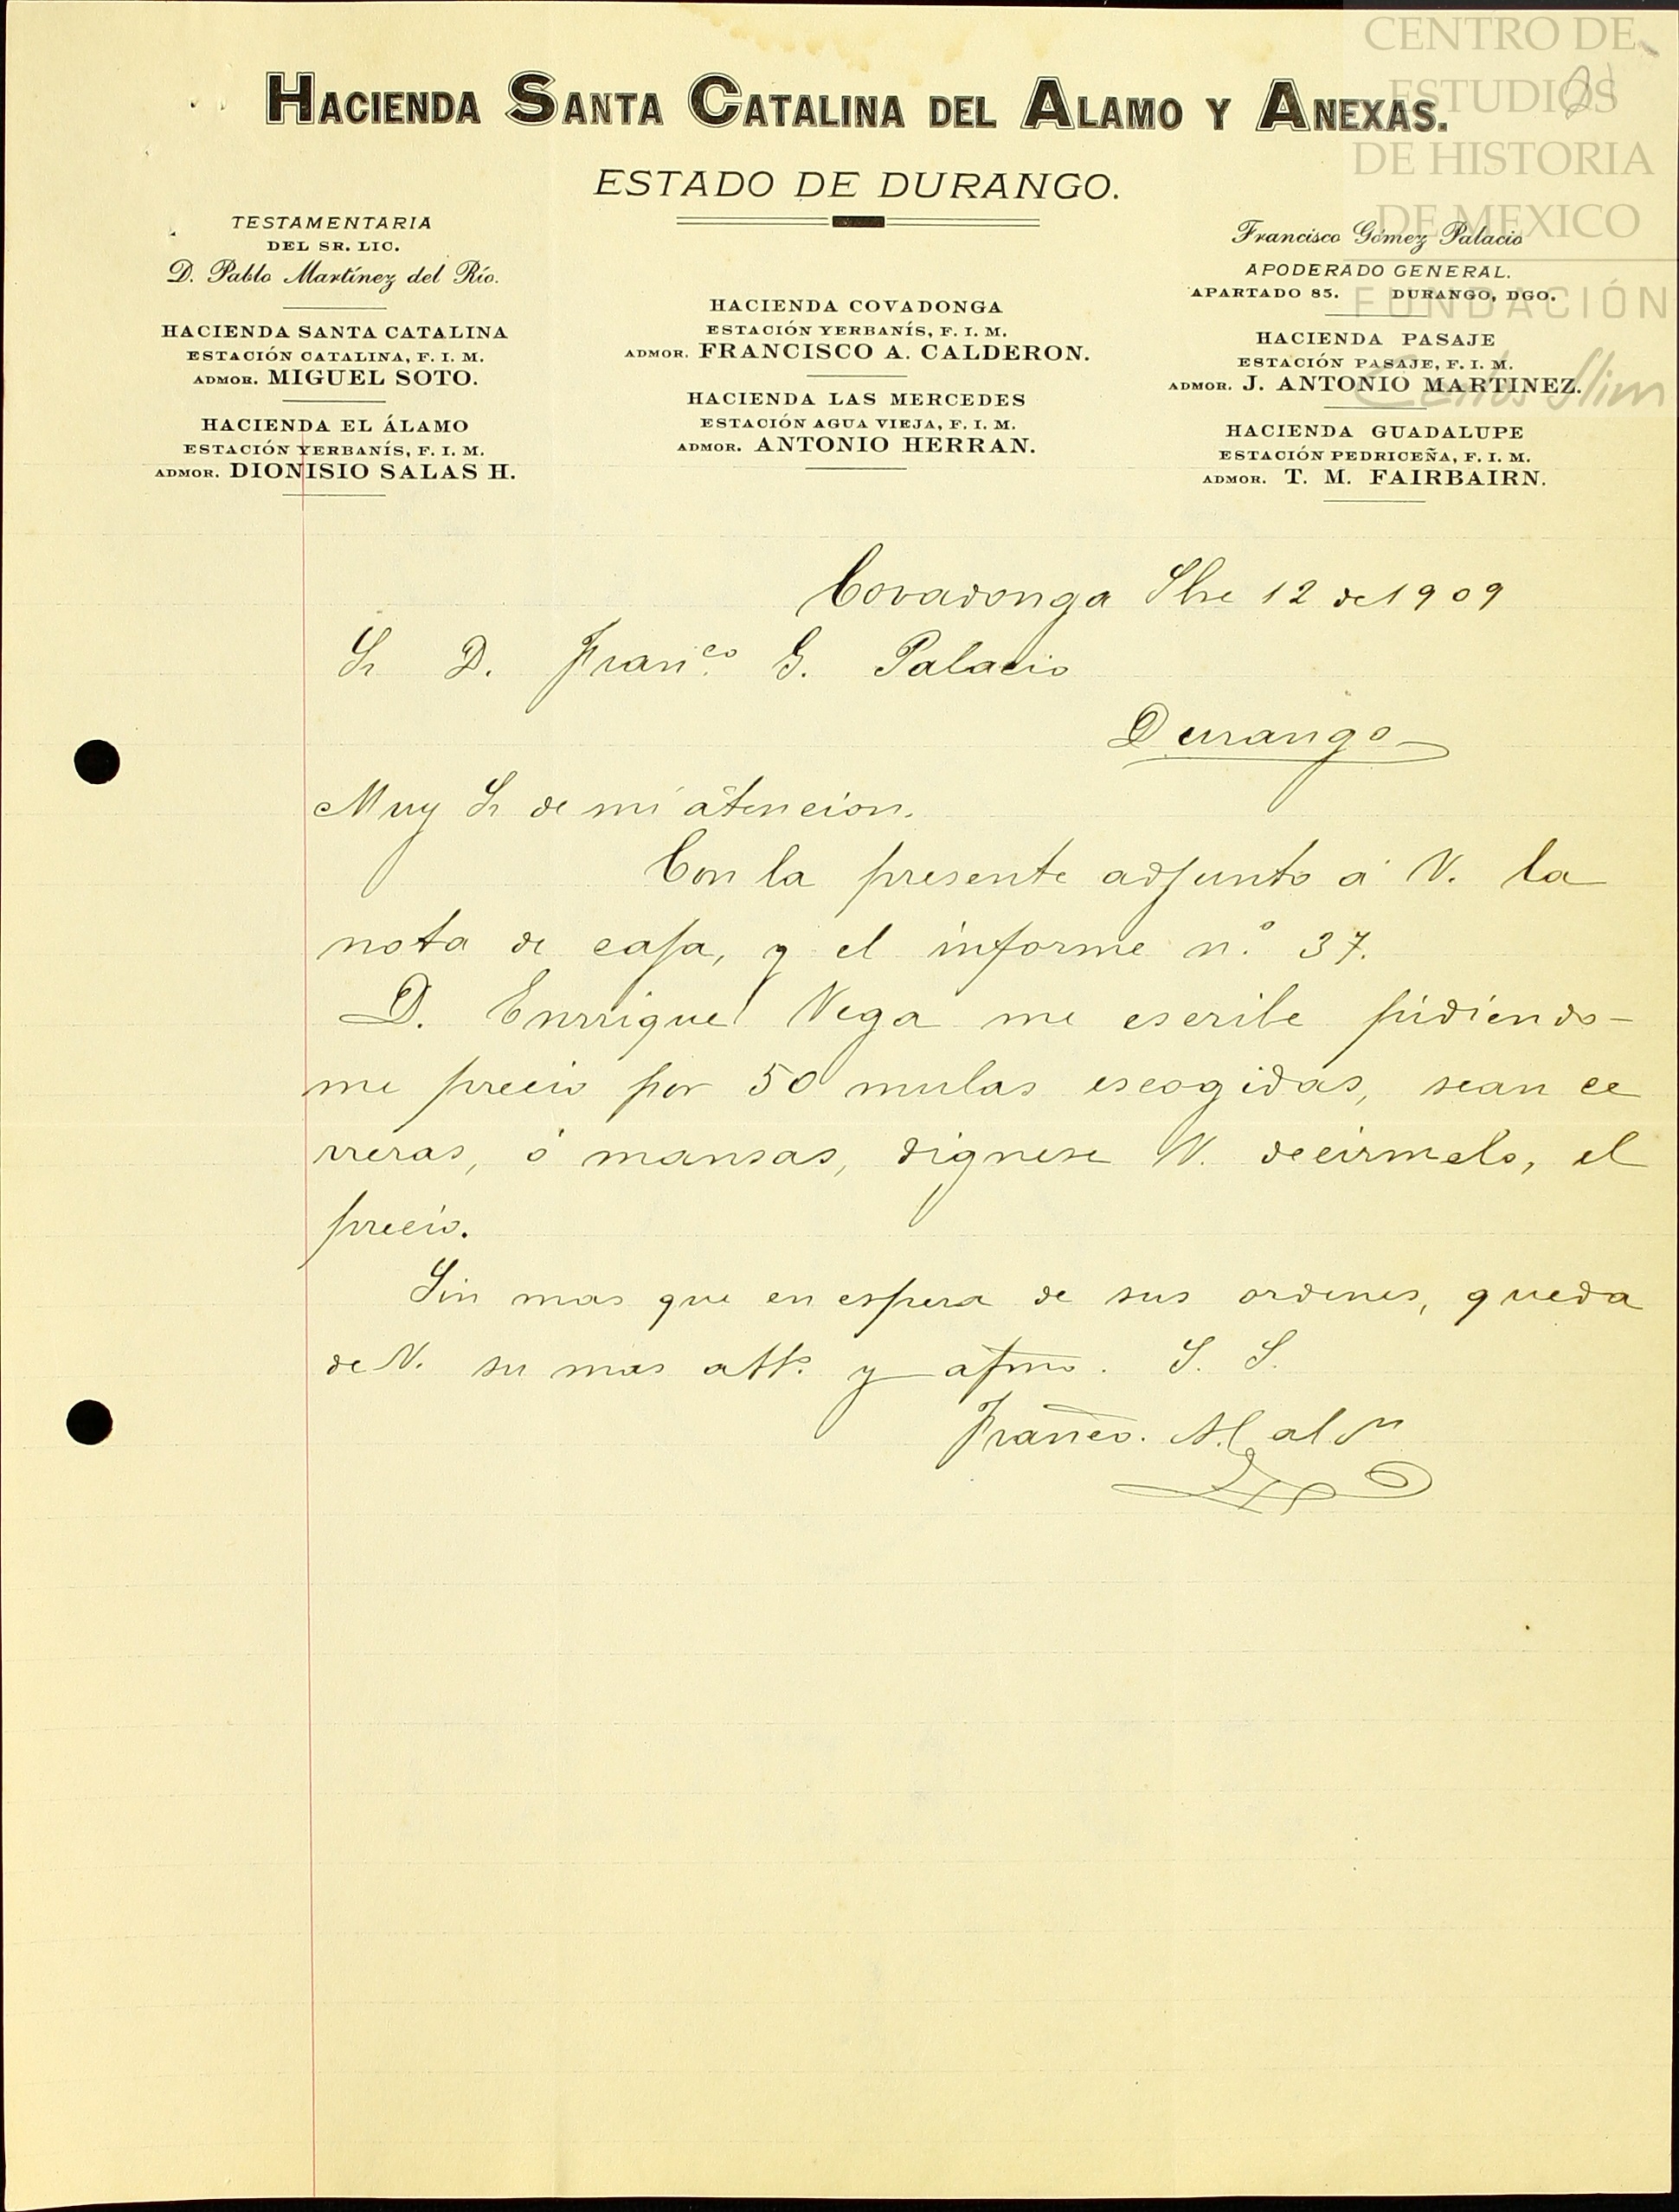 CENTRO DE
ESTUDIOS
DE HISTORIA
DE MEXICO
FUNDACIÓN
Carlos Slim
HACIENDA SANTA CATALINA DEL ALAMO Y ANEXAS.
ESTADO DE DURANGO.
TESTAMENTARIA
DEL SR. LIC.
D. Pablo Martínez del Río.
HACIENDA SANTA CATALINA
ESTACIÓN CATALINA, F. I. M.
ADMOR. MIGUEL SOTO.
HACIENDA EL ÁLAMO
ESTACIÓN YERBANÍS, F. I. M.
ADMOR. DIONISIO SALAS H.
HACIENDA COVADONGA
ESTACIÓN YERBANÍS, F. I. M.
ADMOR. FRANCISCO A. CALDERON.
HACIENDA LAS MERCEDES
ESTACIÓN AGUA VIEJA, F. I. M.
ADMOR. ANTONIO HERRAN.
Francisco Gómez Palacio
APODERADO GENERAL.
APARTADO 85. DURANGO, DGO.
HACIENDA PASAJE
ESTACIÓN PASAJE, F. I. M.
ADMOR. J. ANTONIO MARTINEZ.
HACIENDA GUADALUPE
ESTACIÓN PEDRICEÑA, F. I. M.
ADMOR. T. M. FAIRBAIRN.
Covadonga 12 de 1909
Sr D. Franco. G. Palacio
Durango
Muy Sr de mi átencion.
Con la presente adjunto á V. la
nota de caja, y el informe n.º 37.
D. Enrrique Vega me escribe pidiendo-
me precio por 50 mulas escogidas, sean ce
rreras, ó mansas, dignese V. decirmelo, el
precio.
Sin mas que en espera de sus ordenes, queda
de V. su mas atto. y afmo. S. S.
Franco.